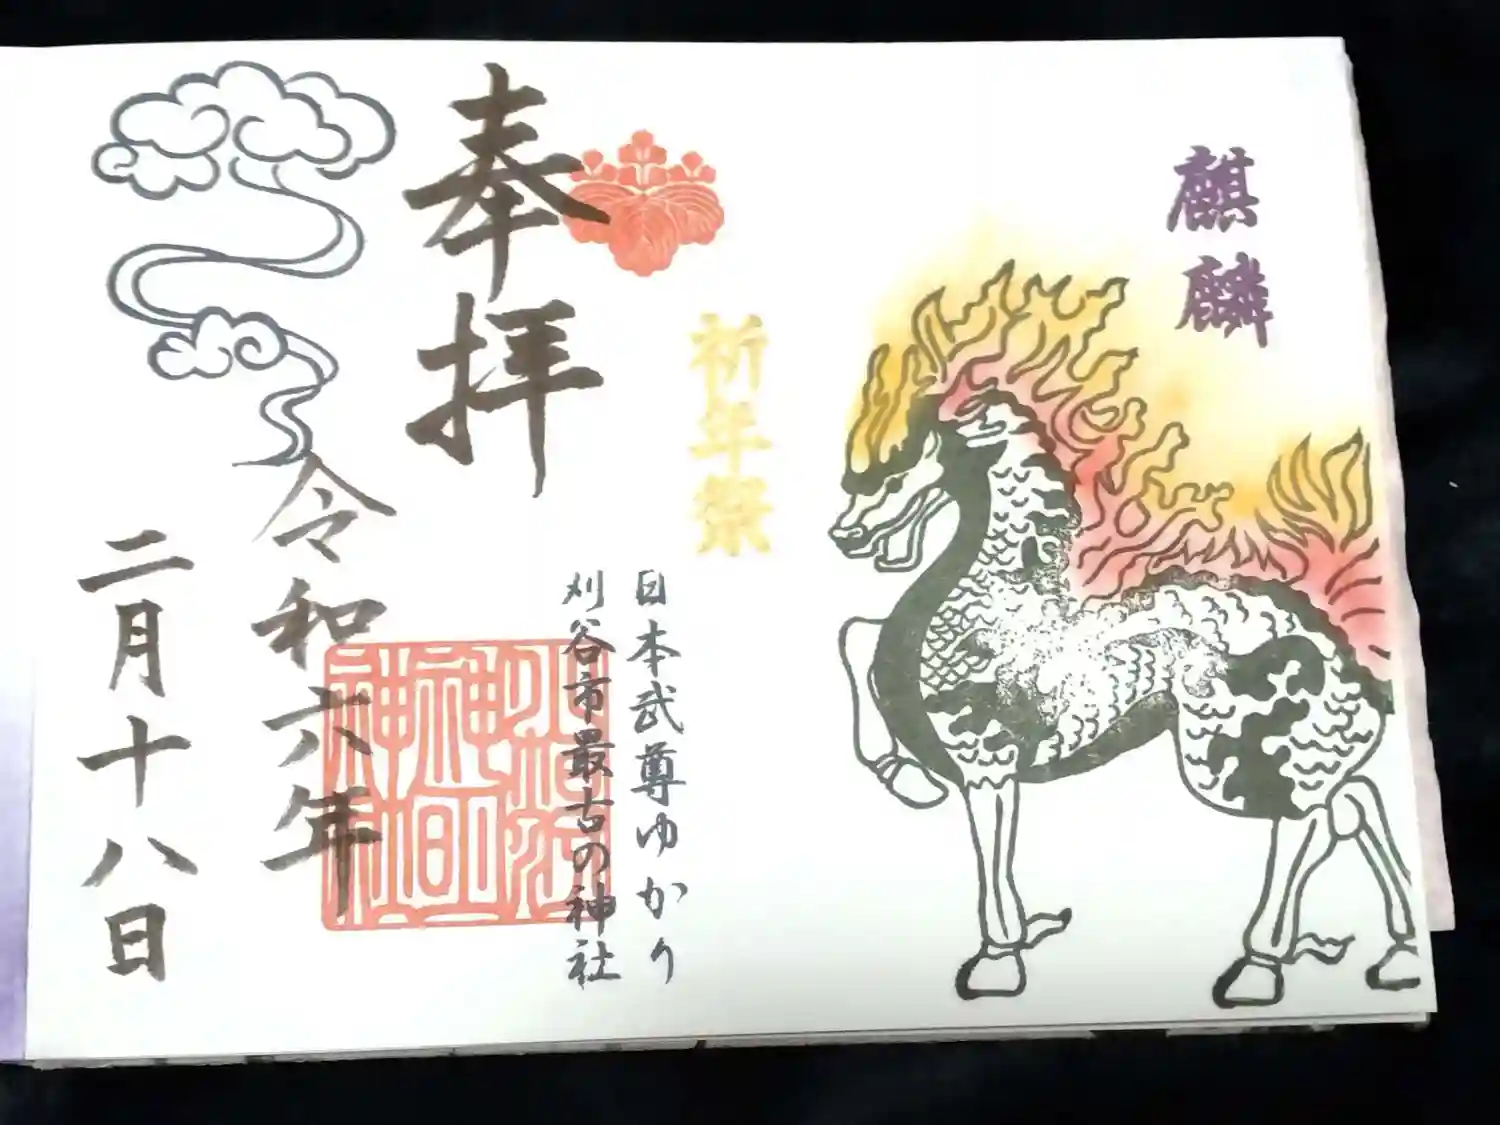 麒麟
祈年祭
奉拝
日本武尊ゆかり
刈谷市最古の神社
令和六年
二月十八日